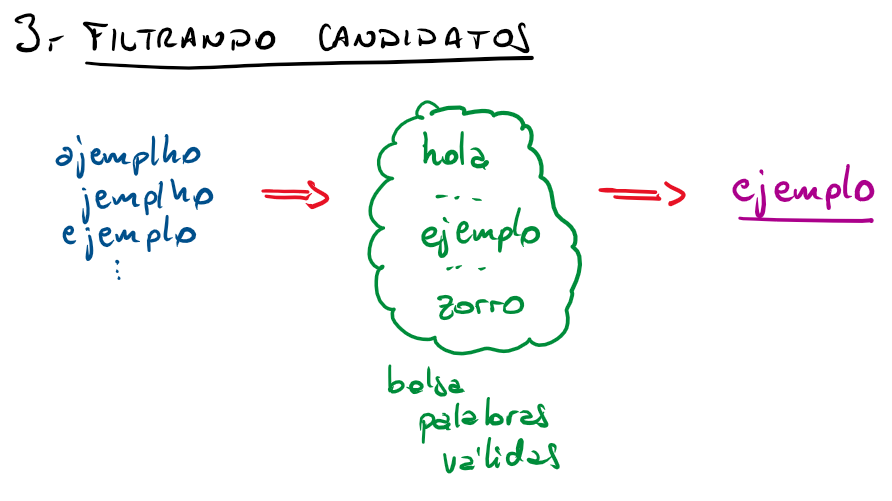 3.- FILTRANDO CANDIDATOS
ajemplho
jemplho
ejemplo
...
hola
...
ejemplo
...
zorro
bolsa
palabras
válidas
ejemplo